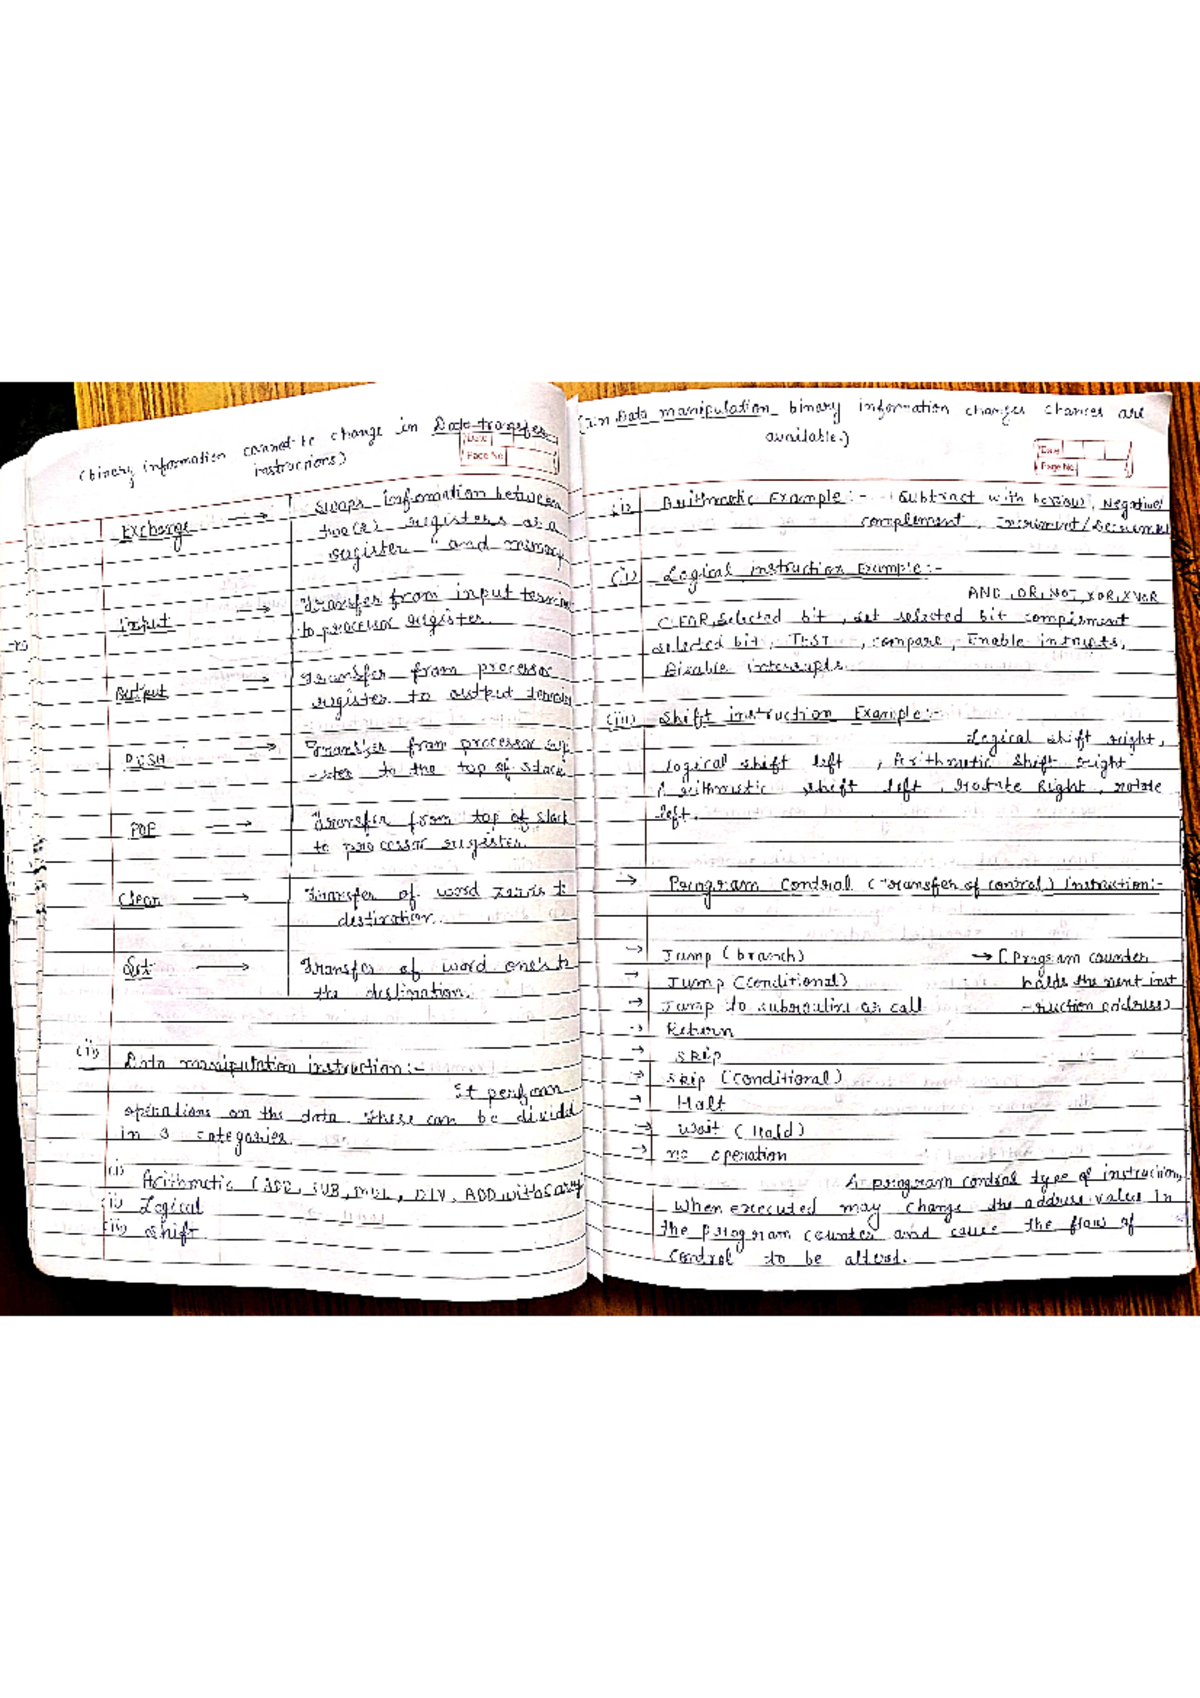 (binary information cannot be change in Data transfer
instructions)
Date
Page No
Exchange → Swaps information between
two(2) registers or a
register and memory
Input → Transfer from input termin
to processor register.
Output → Transfer from processor
register to output termin
PUSH → Transfer from processor reg
-ister to the top of stack
POP → Transfer from top of stack
to processor register.
Clear → Transfer of word zero's to
destination.
Set → Transfer of word one's to
the destination.
(ii) Data manipulation instruction:-
It perform
operations on the data these can be divided
in 3 categories
(i) Arithmetic (ADD, SUB, MUL, DIV, ADD with carry
(ii) Logical
(iii) Shift
(In Data manipulation binary information changes chances are
available.)
Date
Page No.
(i) Arithmetic Example:- Subtract with borrow, Negative/
complement, Increment/Decrement
(i) Logical instruction Example:-
AND, OR, NOT, XOR, XNOR
CLEAR, Selected bit, set selected bit complement
selected bit, TEST, compare, Enable intrupts,
Disable interrupts.
(iii) Shift instruction Example:-
Logical shift right,
logical shift left, Arithmetic shift right
Arithmetic shift left, rotate Right, rotate
left.
→ Program Control (Transfer of control) Instruction:-
→ Jump (branch) → [Program counter
→ Jump (conditional) holds the next inst
→ Jump to subroutine or call -ruction address)
→ Return
→ skip
→ skip (conditional)
→ Halt
→ wait (Hold)
→ no operation
A program control type of instruction,
when executed may change the address value in
the program counter and cause the flow of
control to be altered.